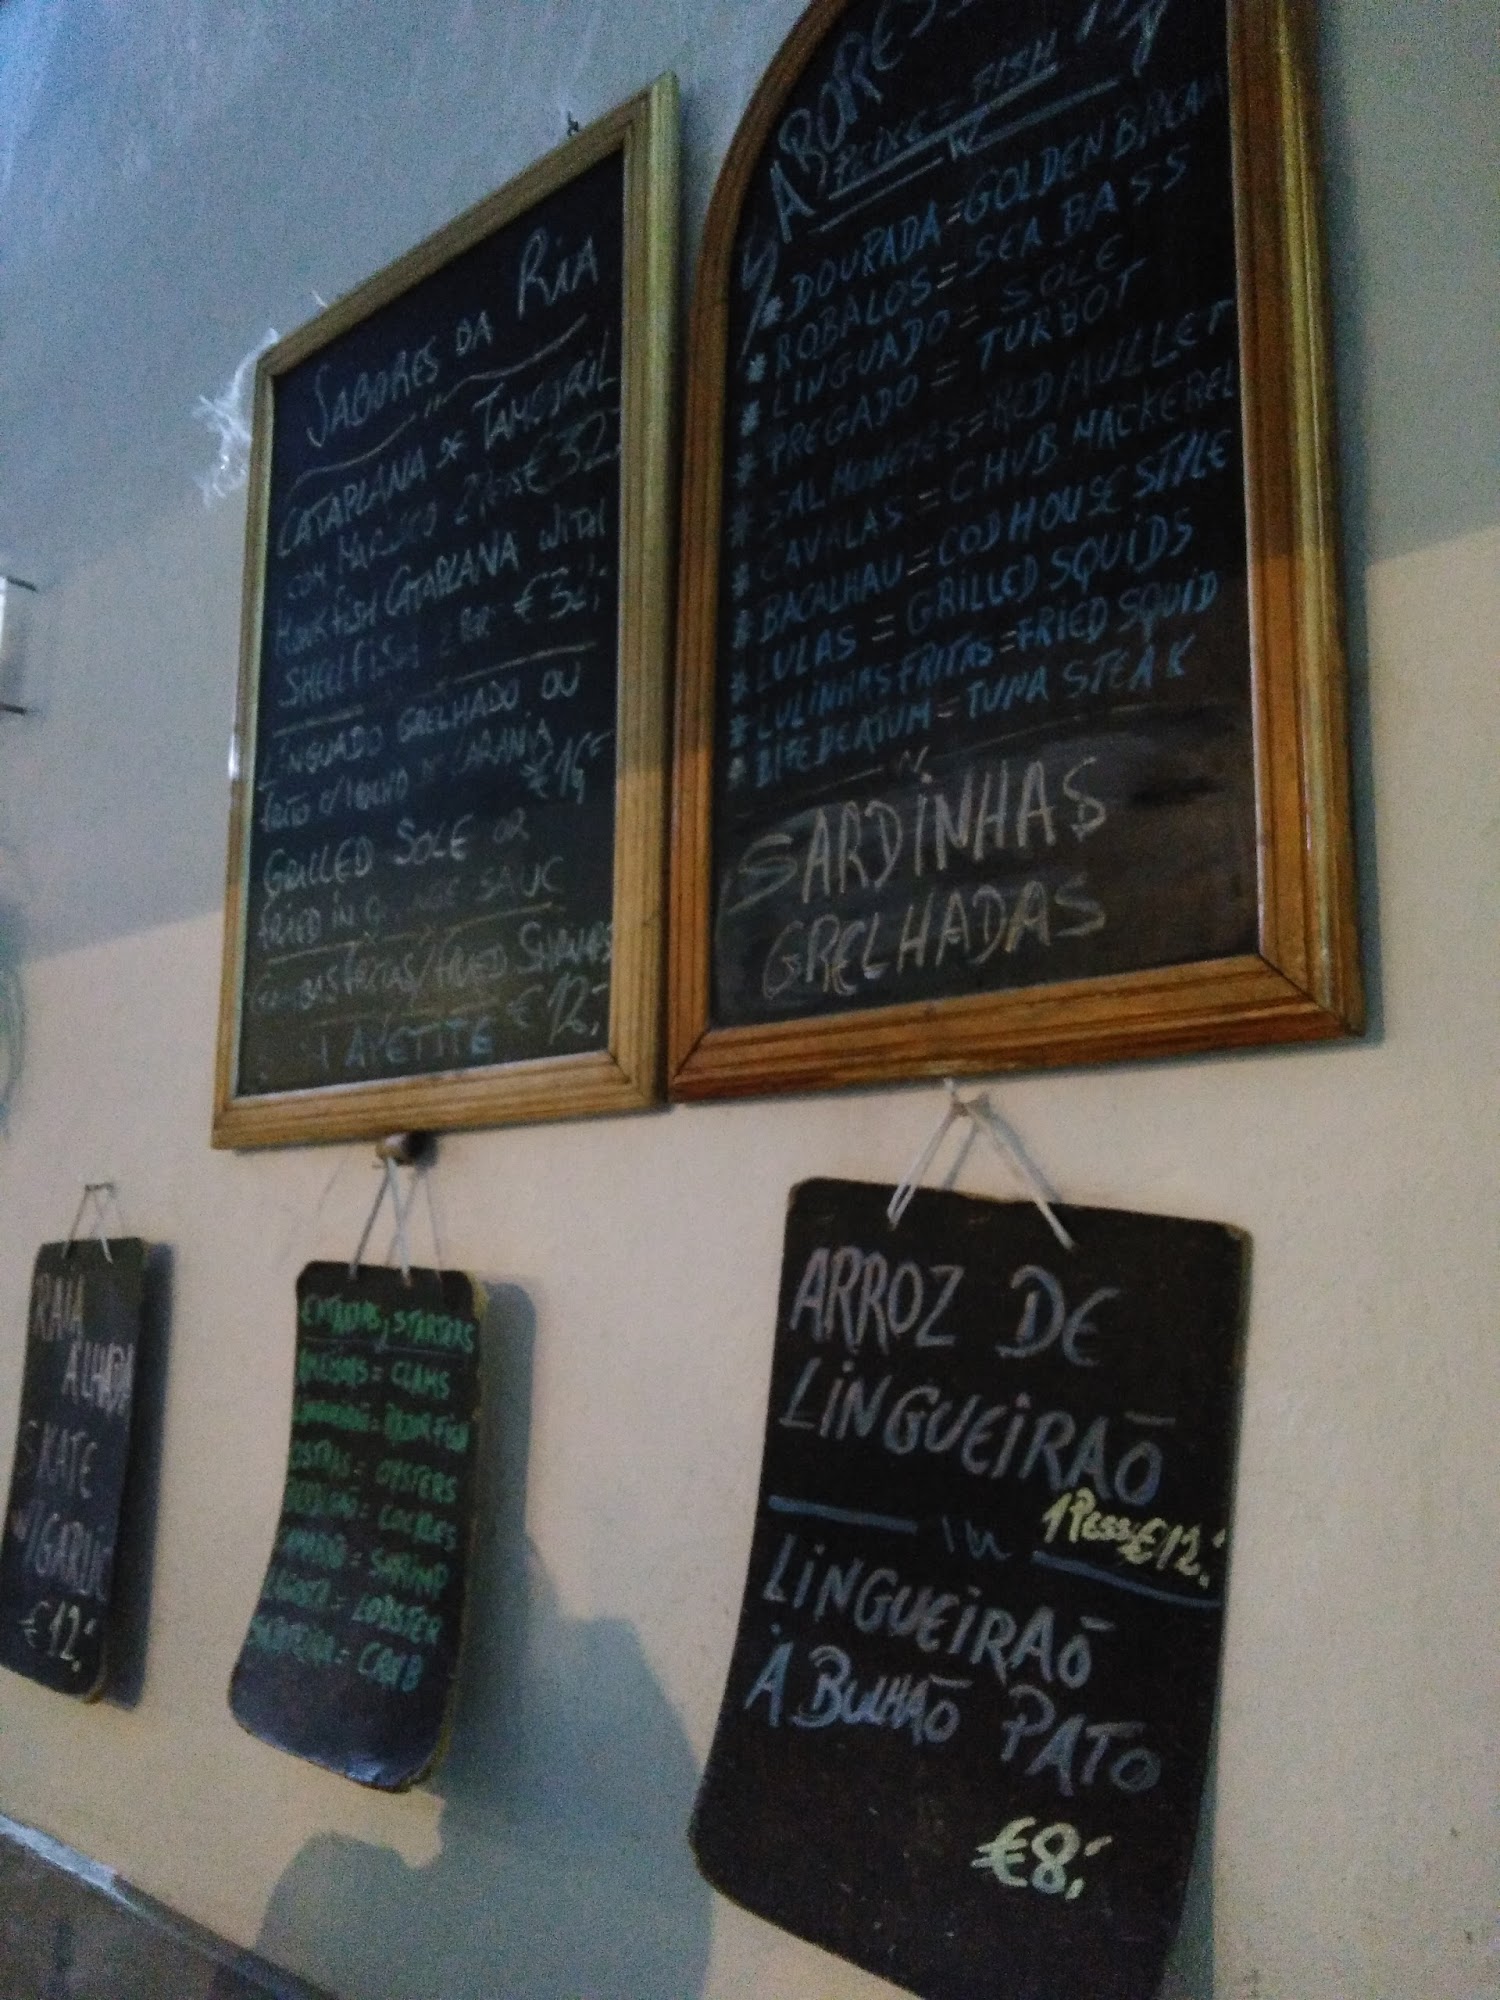 SABORES DA RIA
CATAPLANA DE TAMBORIL
COM MARISCO 2 PESS €32,
MONKFISH CATAPLANA WITH
SHELLFISH 2 PER €32,
LINGUADO GRELHADO OU
FRITO C/MOLHO DE LARANJA
€16
GRILLED SOLE OR
FRIED IN ORANGE SAUC
FRITAS/FRIED
€12,
APETITE
SABORES
PEIXE = FISH
* DOURADA = GOLDEN BREAM
* ROBALOS = SEA BASS
* LINGUADO = SOLE
* PREGADO = TURBOT
* SALMONETES = RED MULLET
* CAVALAS = CHUB MACKEREL
* BACALHAU = COD HOUSE STYLE
* LULAS = GRILLED SQUIDS
* LULINHAS FRITAS = FRIED SQUID
* BIFE DE ATUM = TUNA STEAK
SARDINHAS
GRELHADAS
RAIA
ALHADA
SKATE
W/GARLIC
€12,
ENTRADAS, STARTERS
= CLAMS
OSTRAS = OYSTERS
= COCKLES
= SHRIMP
LAGOSTA = LOBSTER
SAPATEIRA = CRAB
ARROZ DE
LINGUEIRAÕ
1 PESS €12,
LINGUEIRAÕ
À BULHÃO PATO
€8,